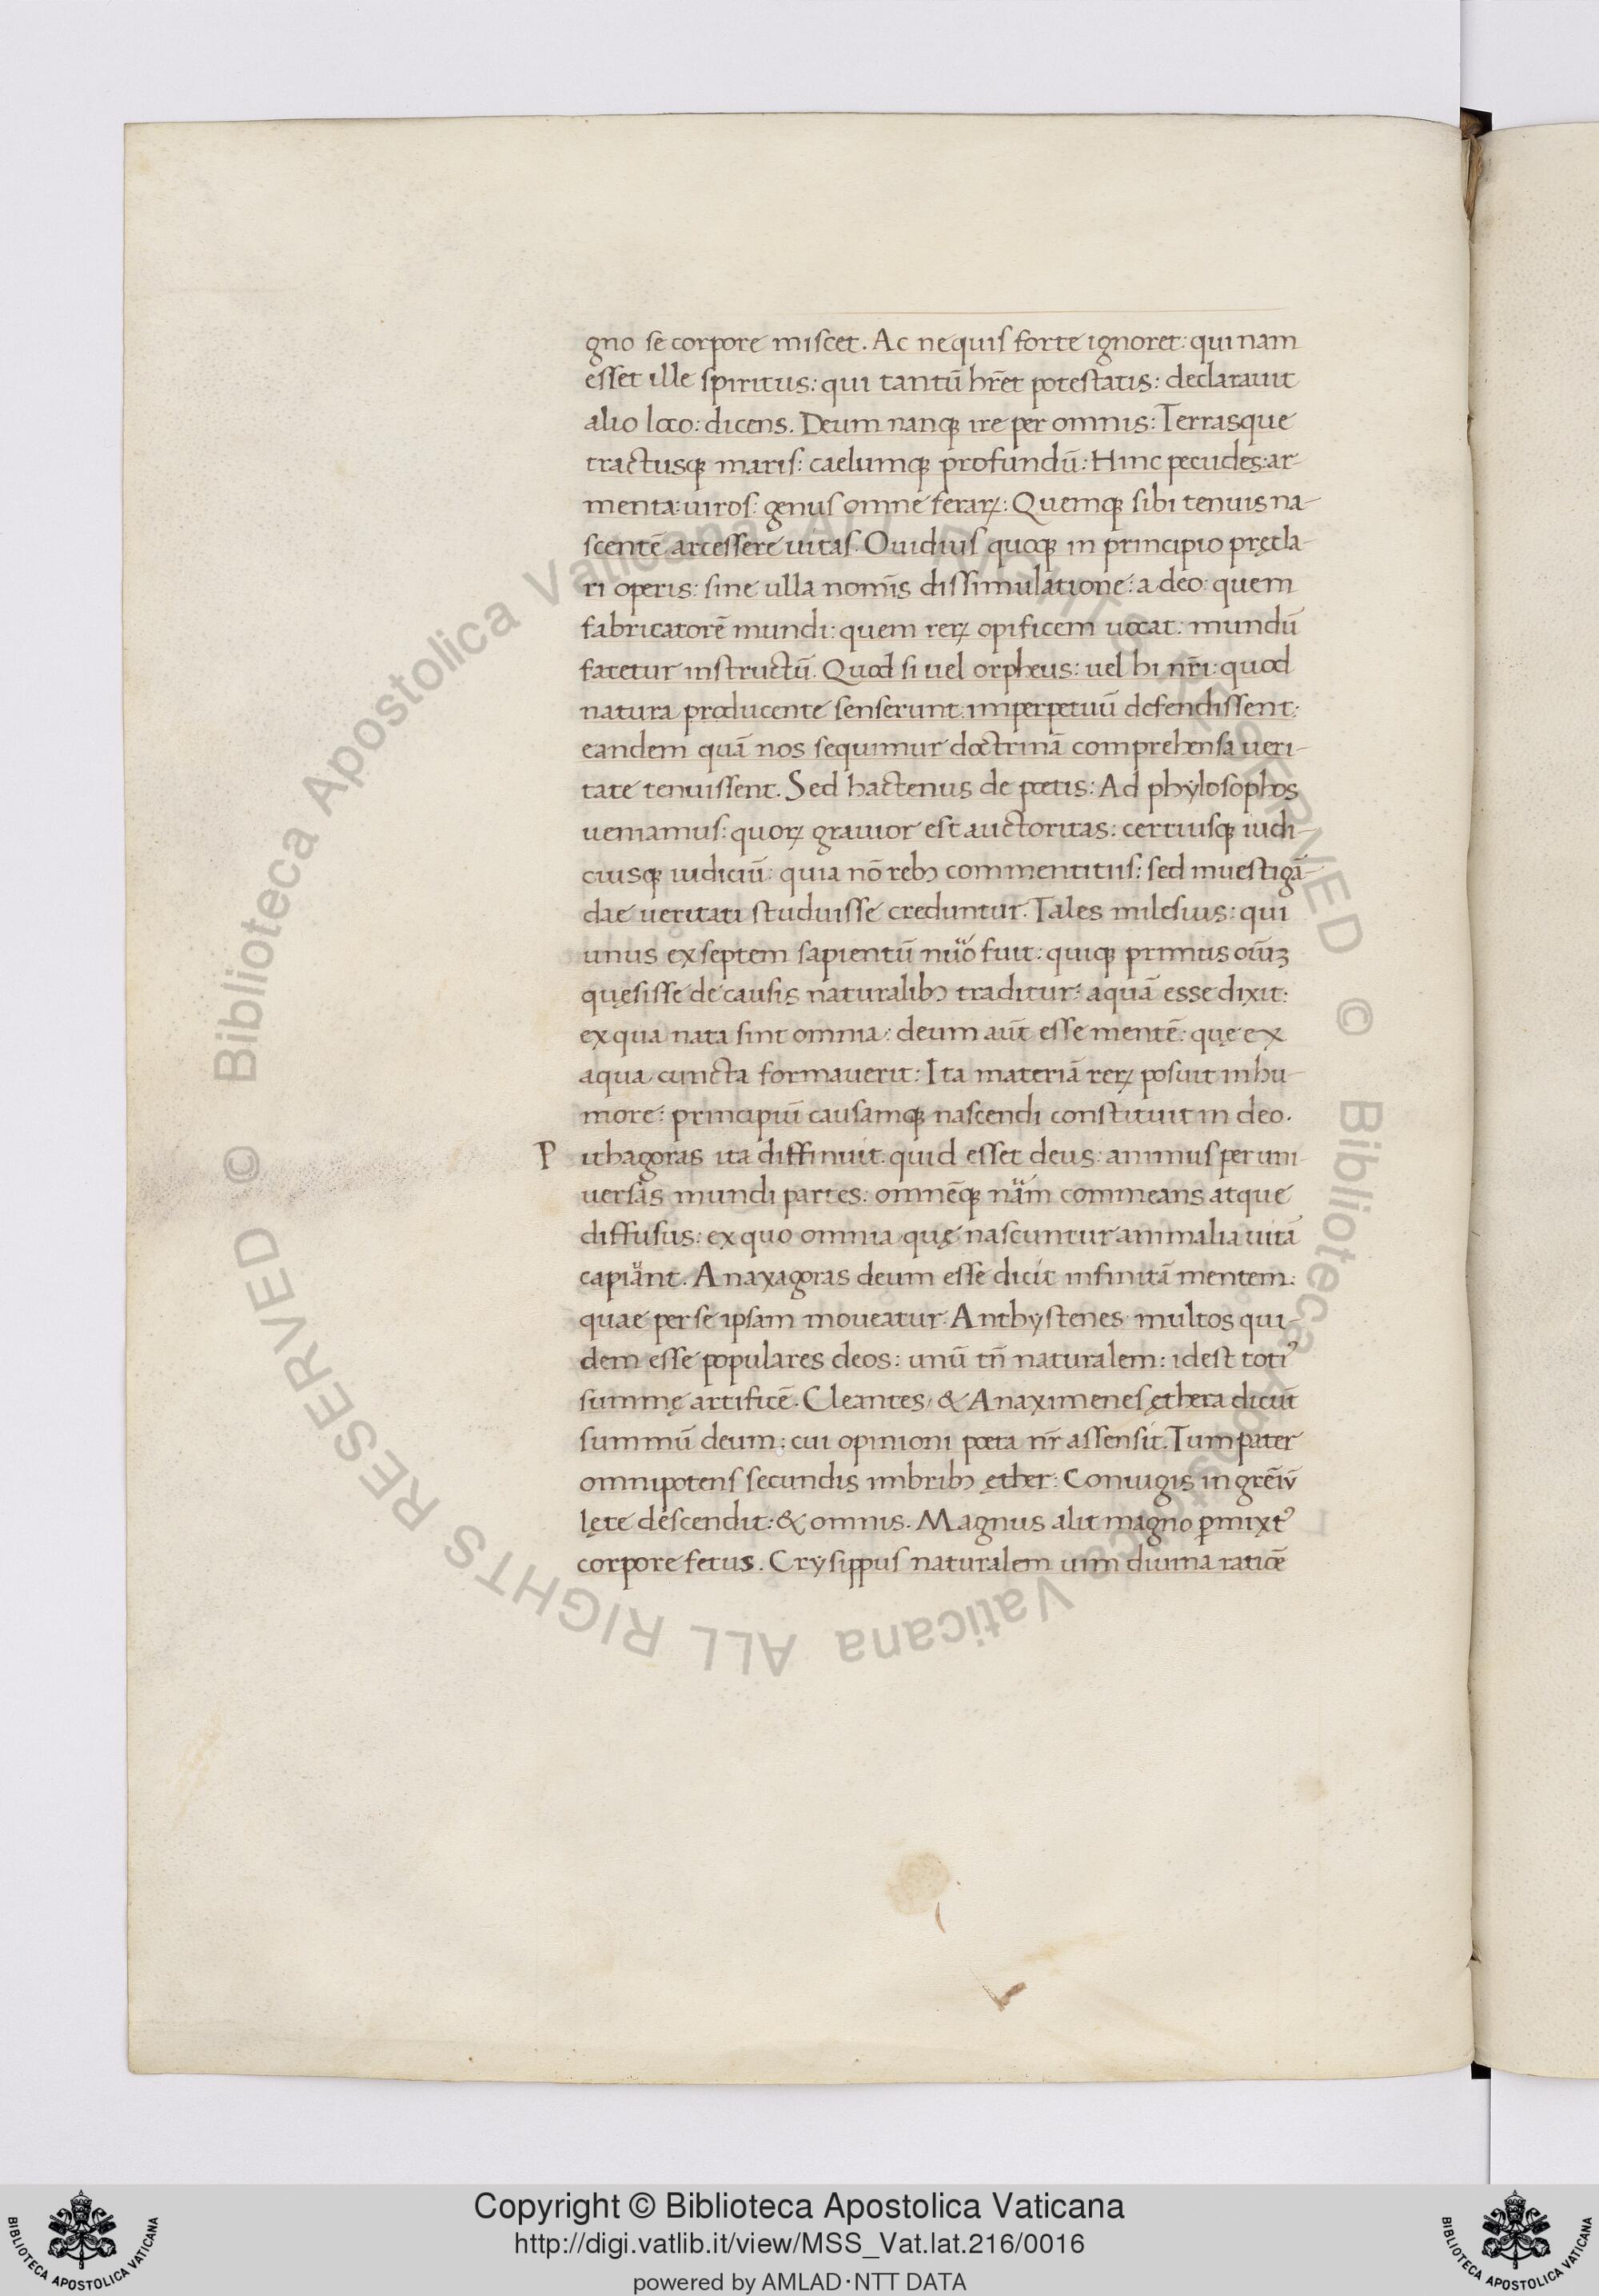 gno se corpore miscet. Ac nequis forte ignoret: qui nam
esset ille spiritus: qui tantū hr̄et potestatis: declarauit
alio loco: dicens. Deum nanq; ire per omnis: Terrasque
tractusq; maris: caelumq; profundū: Hinc pecudes: ar-
menta: uiros: genus omne ferarꝝ: Quemq; sibi tenuis na-
scentē arcessere uitas. Ouidius quoq; in principio pręcla-
ri operis: sine ulla nomīs dissimulatione: a deo: quem
fabricatorē mundi: quem rerꝝ opificem uocat: mundū
fatetur instructū. Quod si uel orpheus: uel hi nr̄i: quod
natura producente senserunt: imperpetuū defendissent:
eandem quā nos sequimur doctrinā comprehensa ueri-
tate tenuissent. Sed hactenus de poetis: Ad phylosophos
ueniamus: quorꝝ grauior est auctoritas: certiusq; iudi-
ciusq; iudiciū: quia nō reb; commentitiis: sed inuestigā-
dae ueritati studuisse creduntur. Tales milesius: qui
unus ex septem sapientū nūo fuit: quiq; primus oīūꝫ
quęsisse de causis naturalib; traditur: aquā esse dixit:
ex qua nata sint omnia: deum aūt esse mentē: quę ex
aqua cuncta formauerit: Ita materiā rerꝝ posuit in hu-
more: principiū causamq; nascendi constituit in deo.
P ithagoras ita diffinuit: quid esset deus: animus per uni-
uersas mundi partes: omnēq; nām commeans atque
diffusus: ex quo omnia quę nascuntur animalia uitā
capiant. Anaxagoras deum esse dicit infinitā mentem:
quae per se ipsam moueatur. Anthystenes multos qui-
dem esse populares deos: unū tn̄ naturalem: idest totiꝰ
summę artificē. Cleantes, & Anaximenes ęthera dicūt
summū deum: cui opinioni poeta nr̄ assensit. Tum pater
omnipotens fecundis imbrib; ęther: Coniugis in grēiū
lęte descendit: & omnis. Magnus alit magno ꝑmixtꝰ
corpore fetus. Crysippus naturalem uim diuina ratiōe
© Biblioteca Apostolica Vaticana ALL RIGHTS RESERVED © Biblioteca Apostolica Vaticana ALL RIGHTS RESERVED
BIBLIOTECA APOSTOLICA VATICANA
Copyright © Biblioteca Apostolica Vaticana
http://digi.vatlib.it/view/MSS_Vat.lat.216/0016
powered by AMLAD·NTT DATA
BIBLIOTECA APOSTOLICA VATICANA